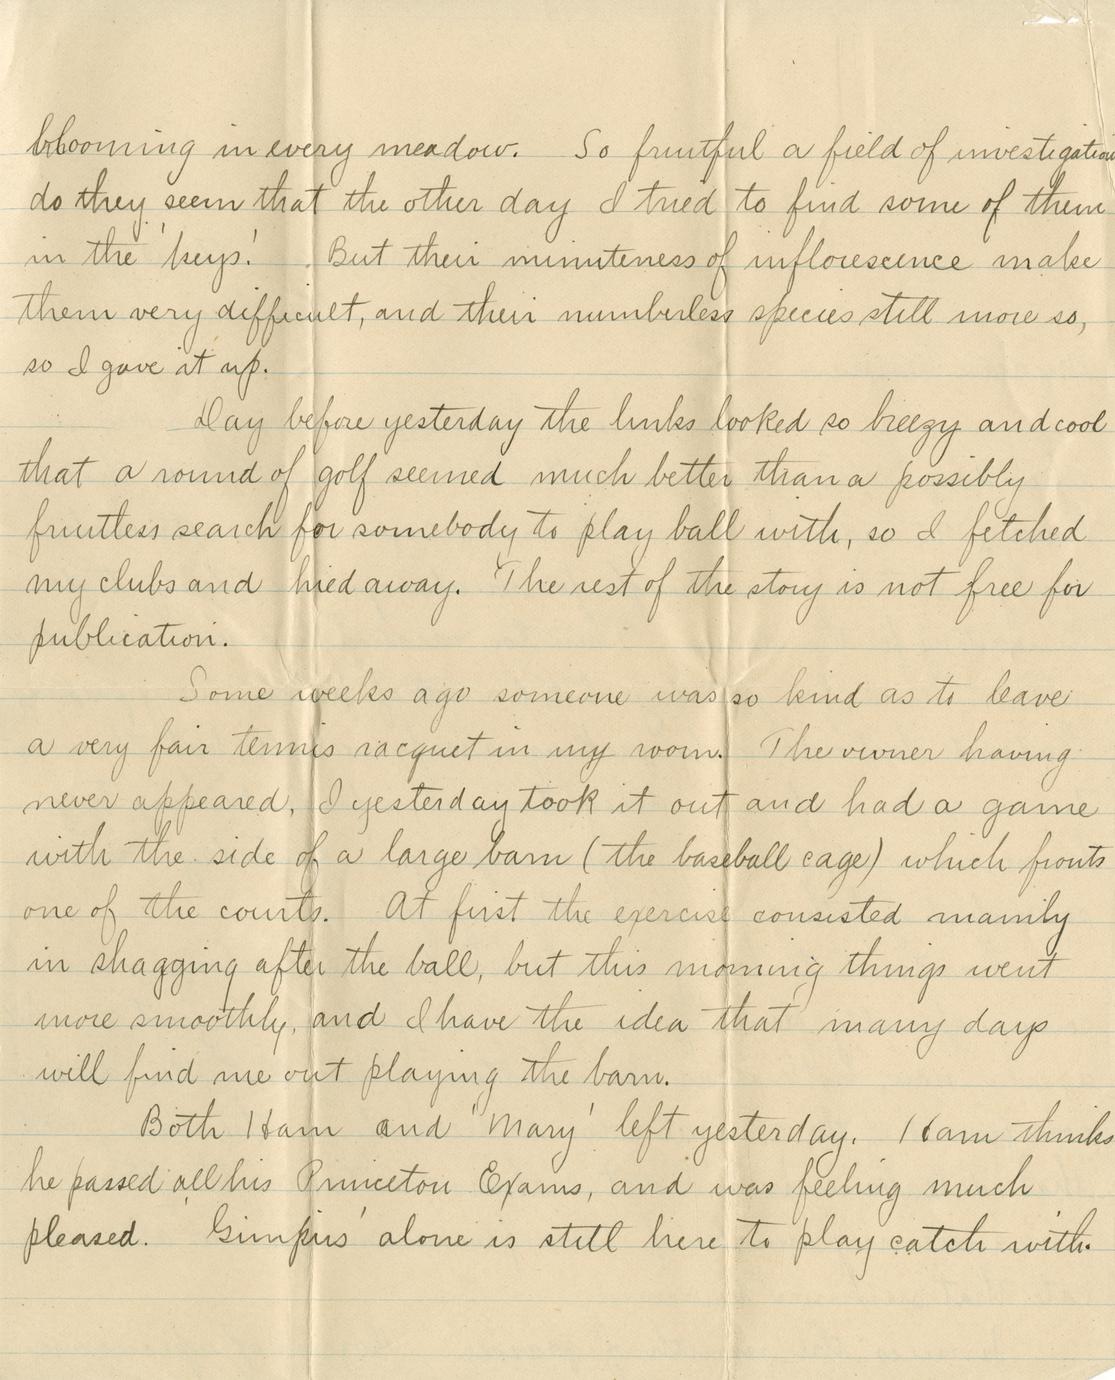 blooming in every meadow. So fruitful a field of investigation
do they seem that the other day I tried to find some of them
in the 'keys.' But their minuteness of inflorescence make
them very difficult, and their numberless species still more so,
so I gave it up.
Day before yesterday the links looked so breezy and cool
that a round of golf seemed much better than a possibly
fruitless search for somebody to play ball with, so I fetched
my clubs and hied away. The rest of the story is not free for
publication.
Some weeks ago someone was so kind as to leave
a very fair tennis racquet in my room. The owner having
never appeared, I yesterday took it out and had a game
with the side of a large barn (the baseball cage) which fronts
one of the courts. At first the exercise consisted mainly
in shagging after the ball, but this morning things went
more smoothly, and I have the idea that many days
will find me out playing the barn.
Both Ham and 'Mary' left yesterday. Ham thinks
he passed all his Princeton Exams, and was feeling much
pleased. Gimpus' alone is still here to play catch with.